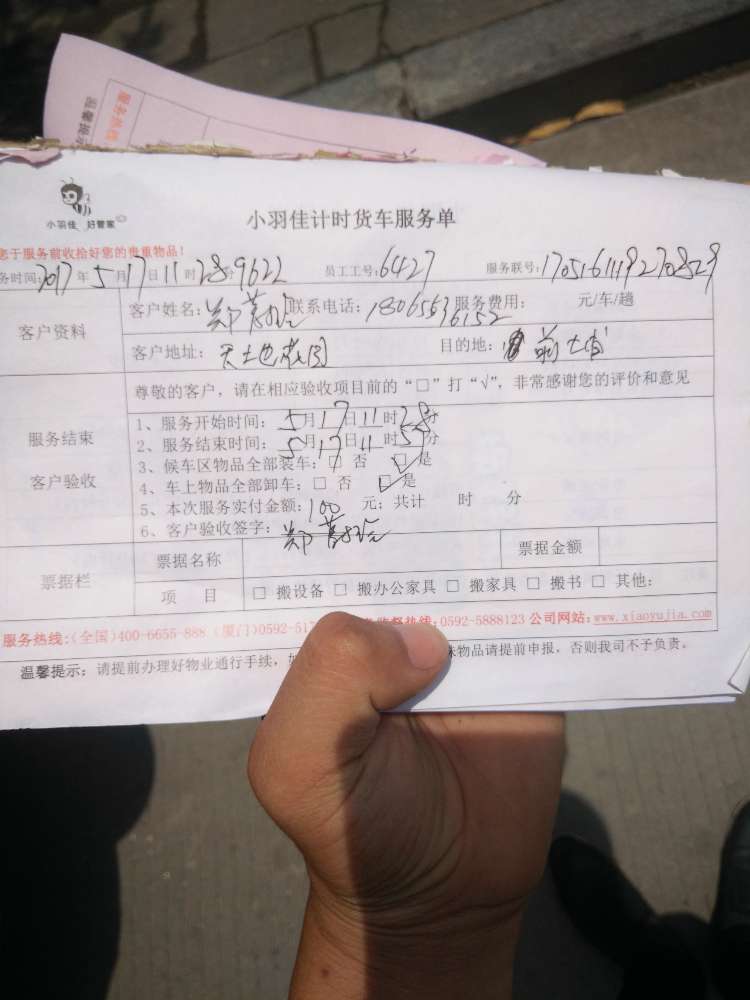 小羽佳 好管家
小羽佳计时货车服务单
您于服务前收拾好您的贵重物品!
务时间: 2017年5月17日11时28分 9622 员工工号: 6427 服务联号: 170516111927082529
客户资料
客户姓名: 郑 联系电话: 18065636152 服务费用: 元/车/趟
客户地址: 天地花园 目的地: 前
服务结束
客户验收
尊敬的客户,请在相应验收项目前的“□”打“√”,非常感谢您的评价和意见
1、服务开始时间: 5月17日11时28分
2、服务结束时间: 5月17日11时55分
3、候车区物品全部装车: □ 否 ☑ 是
4、车上物品全部卸车: □ 否 ☑ 是
5、本次服务实付金额: 100 元; 共计 时 分
6、客户验收签字: 郑
票据栏
票据名称 票据金额
项 目 □ 搬设备 □ 搬办公家具 □ 搬家具 □ 搬书 □ 其他:
服务热线:(全国)400-6655-888 (厦门)0592-517 监督热线:0592-5888123 公司网站:www.xiaoyujia.com
温馨提示: 请提前办理好物业通行手续, 物品请提前申报,否则我司不予负责。